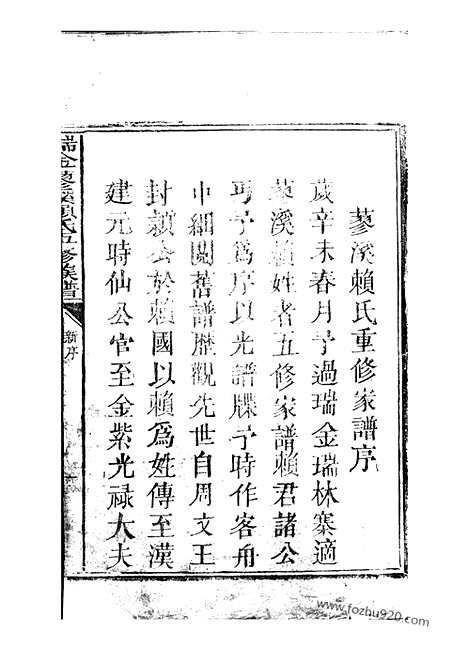 蓼溪賴氏重修家譜序
歲辛未春月予過瑞金瑞林寨適
蓼溪賴姓者五修家譜賴君諸公
丐予爲序以光譜牒予時作客舟
中細閱舊譜歷觀先世自周文王
封頴公於賴國以賴爲姓傳至漢
建元時仙公官至金紫光祿大夫
瑞金蓼溪賴氏五修族譜
新序
www.fozhu920.com